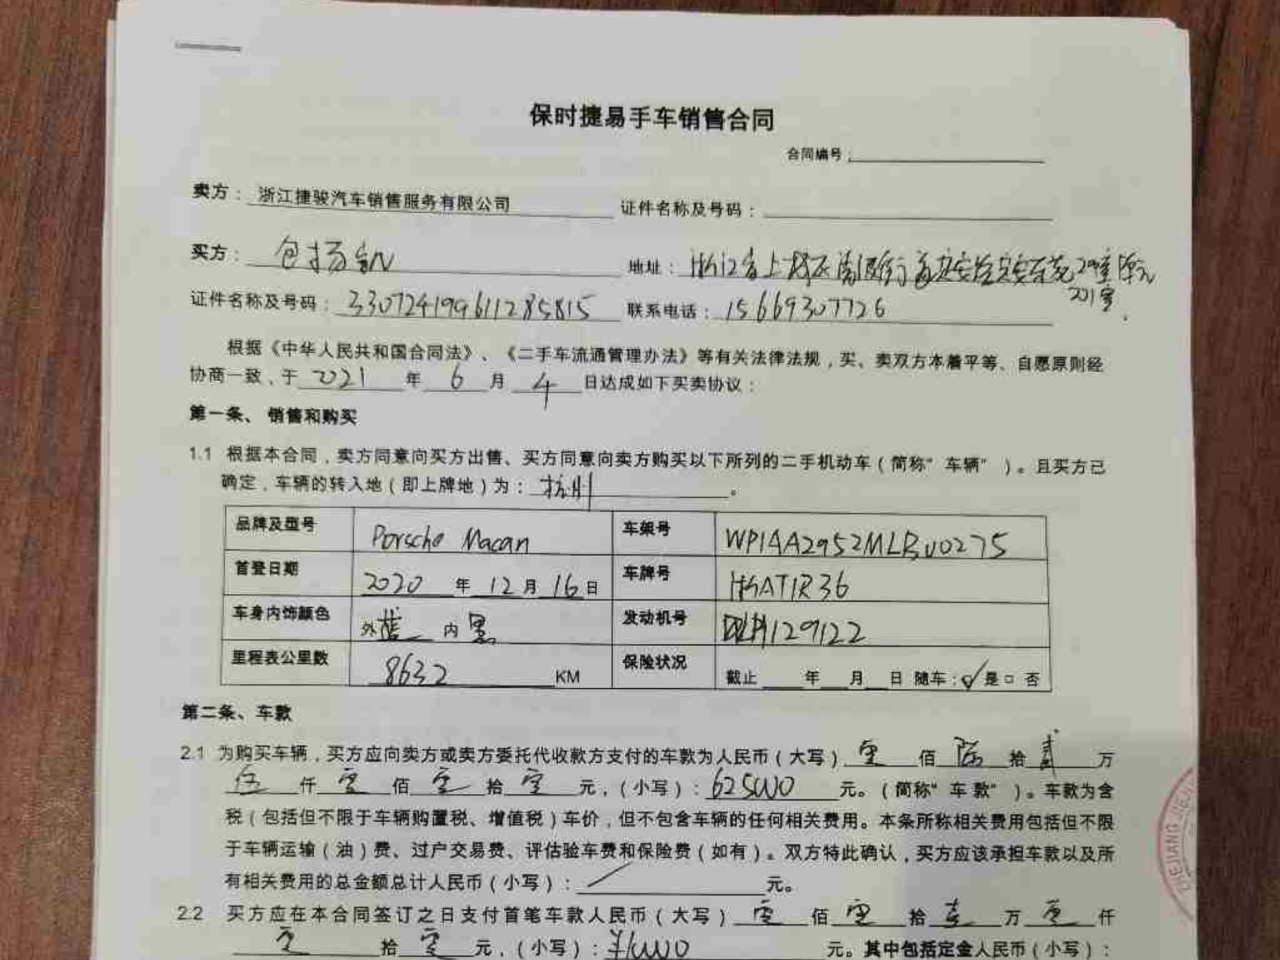 保时捷易手车销售合同
合同编号：
卖方：浙江捷骏汽车销售服务有限公司 证件名称及号码：
买方：包扬 地址：浙江省上 29幢 单元
201室
证件名称及号码：330724199611285815 联系电话：15669307726
根据《中华人民共和国合同法》、《二手车流通管理办法》等有关法律法规，买、卖双方本着平等、自愿原则经
协商一致，于 2021 年 6 月 4 日达成如下买卖协议：
第一条、 销售和购买
1.1 根据本合同，卖方同意向买方出售、买方同意向卖方购买以下所列的二手机动车（简称“车辆”）。且买方已
确定，车辆的转入地（即上牌地）为：杭州 。
品牌及型号 Porsche Macan 车架号 WP1AA2952MLB00275
首登日期 2020 年 12 月 16 日 车牌号 浙AT1R36
车身内饰颜色 外蓝 内黑 发动机号 129122
里程表公里数 8632 KM 保险状况 截止 年 月 日 随车：☑是□否
第二条、车款
2.1 为购买车辆，买方应向卖方或卖方委托代收款方支付的车款为人民币（大写）零 佰 陆 拾 贰 万
伍 仟 零 佰 零 拾 零 元，（小写）：625000 元。（简称“车款”）。车款为含
税（包括但不限于车辆购置税、增值税）车价，但不包含车辆的任何相关费用。本条所称相关费用包括但不限
于车辆运输（油）费、过户交易费、评估验车费和保险费（如有）。双方特此确认，买方应该承担车款以及所
有相关费用的总金额总计人民币（小写）：／ 元。
2.2 买方应在本合同签订之日支付首笔车款人民币（大写）零 佰 零 拾 壹 万 零 仟
零 拾 零 元，（小写）：¥10000 元。其中包括定金人民币（小写）：
ZHEJIANG JIEJ